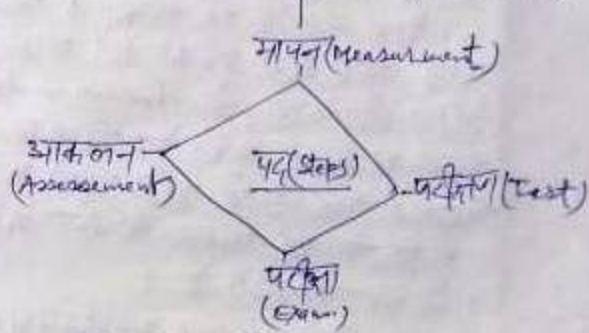 मापन (Measurement)
आकलन
(Assessement)
पद (Steps)
परीक्षण (Test)
परीक्षा
(Exam.)